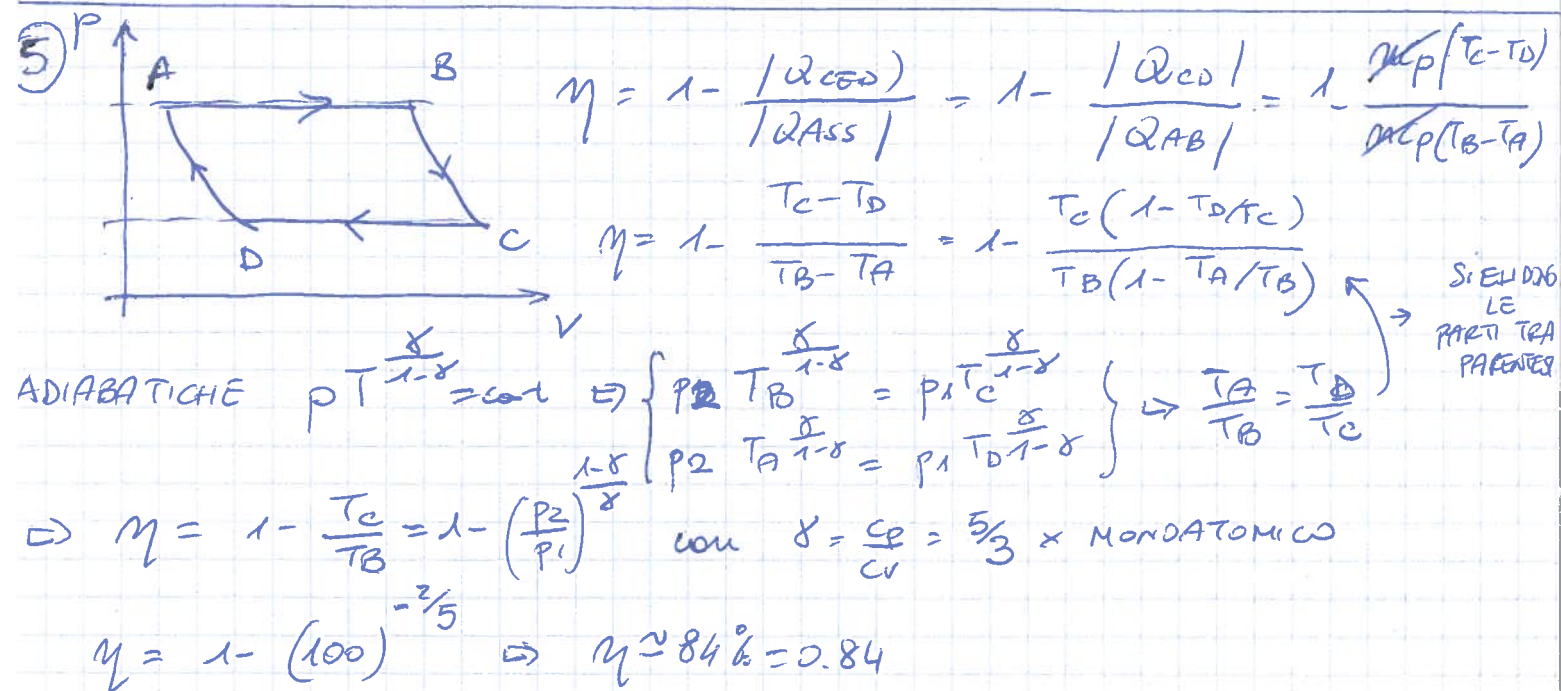 5) P
A B
η = 1 - |Qced) / |Qass| = 1 - |Qcd| / |Qab| = 1 - ncp(Tc-TD) / ncp(TB-TA)
D C
V
η = 1 - Tc-TD / TB-TA = 1 - Tc(1-TD/Tc) / TB(1-TA/TB)
→ LE PARTI TRA PARENTESI
ADIABATICHE pT^(γ/(1-γ)) = cost ⇒ { p2 TB^(γ/(1-γ)) = p1 Tc^(γ/(1-γ))
p2 TA^(γ/(1-γ)) = p1 TD^(γ/(1-γ)) } ⇒ TA/TB = TD/Tc
⇒ η = 1 - Tc/TB = 1 - (p2/p1)^((1-γ)/γ) con γ = cp/cv = 5/3 x MONOATOMICO
η = 1 - (100)^(-2/5) ⇒ η ≃ 84% = 0.84